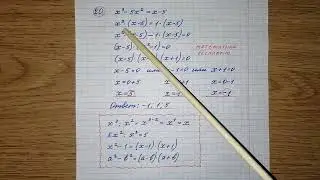 20) x³ - 5x² = x - 5
x² · (x - 5) = 1 · (x - 5)
x² (x - 5) - 1 · (x - 5) = 0
(x - 5) (x² - 1) = 0
(x - 5) (x - 1) (x + 1) = 0
x - 5 = 0 или x - 1 = 0 или x + 1 = 0
x = 0 + 5 x = 0 + 1 x = 0 - 1
x = 5 x = 1 x = -1
Ответ: -1, 1, 5
x³ : x² = x³⁻² = x¹ = x
5x² : x² = 5
x² - 1 = (x - 1) · (x + 1)
a² - b² = (a - b) · (a + b)